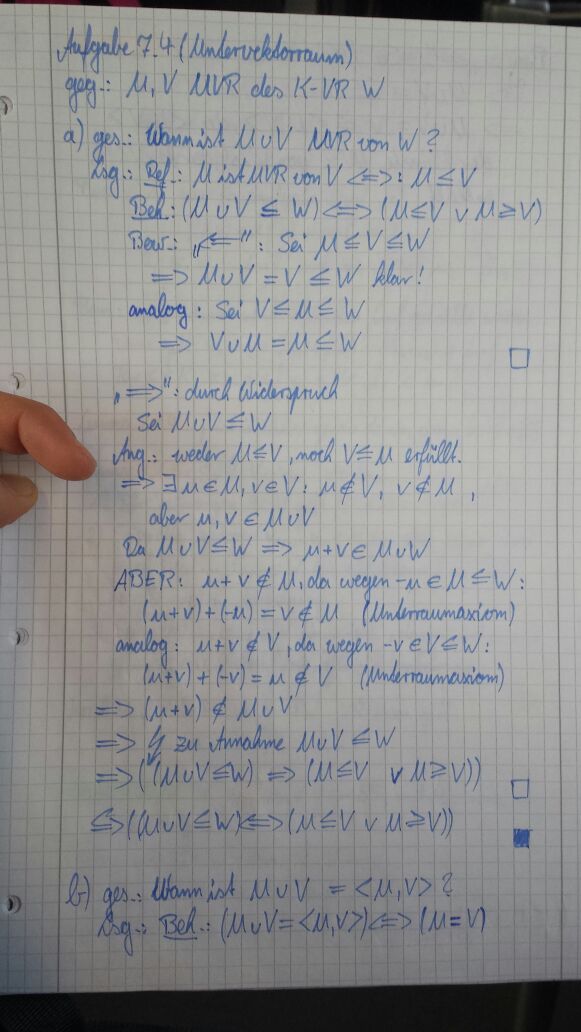 Aufgabe 7.4 (Untervektorraum)
geg.: U, V UVR des K-VR W
a) ges.: Wann ist U∪V UVR von W?
Lsg.: Def.: U ist UVR von V <=>: U ≤ V
Beh.: (U∪V ≤ W) <=> (U≤V ∨ U≥V)
Bew.: „<=": Sei U ≤ V ≤ W
=> U∪V = V ≤ W klar!
analog: Sei V ≤ U ≤ W
=> V∪U = U ≤ W □
„=>": durch Widerspruch
Sei U∪V ≤ W
Ang.: weder U≤V, noch V≤U erfüllt.
=> ∃ u∈U, v∈V: u∉V, v∉U,
aber u, v ∈ U∪V
Da U∪V≤W => u+v ∈ U∪W
ABER: u+v ∉ U, da wegen -u ∈ U ≤ W:
(u+v)+(-u) = v ∉ U (Unterraumaxiom)
analog: u+v ∉ V, da wegen -v ∈ V ≤ W:
(u+v)+(-v) = u ∉ V (Unterraumaxiom)
=> (u+v) ∉ U∪V
=> ↯ zu Annahme U∪V ≤ W
=> ((U∪V≤W) => (U≤V ∨ U≥V)) □
=> ((U∪V≤W) <=> (U≤V ∨ U≥V)) ■
b) ges.: Wann ist U∪V = <U,V>?
Lsg.: Beh.: (U∪V=<U,V>) <=> (U=V)